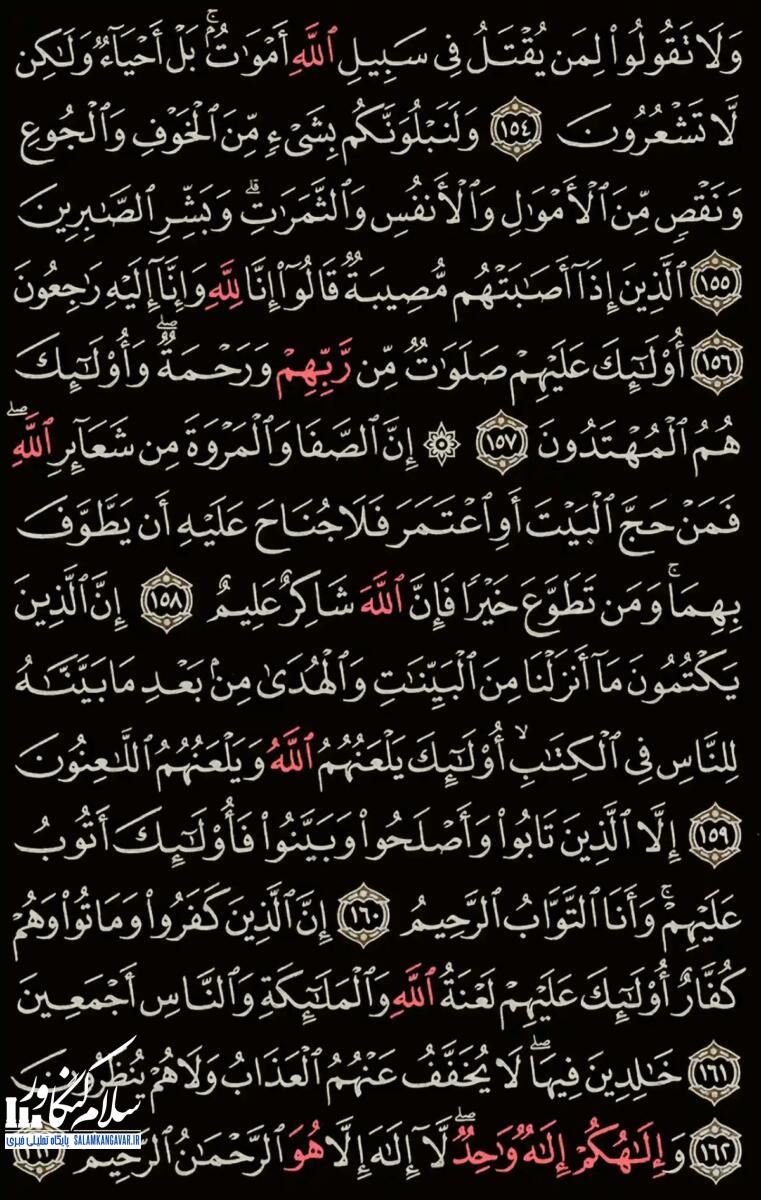 وَلَا تَقُولُوا۟ لِمَن يُقْتَلُ فِى سَبِيلِ ٱللَّهِ أَمْوَٰتٌۢ ۚ بَلْ أَحْيَآءٌ وَلَـٰكِن
لَّا تَشْعُرُونَ ١٥٤ وَلَنَبْلُوَنَّكُم بِشَىْءٍ مِّنَ ٱلْخَوْفِ وَٱلْجُوعِ
وَنَقْصٍ مِّنَ ٱلْأَمْوَٰلِ وَٱلْأَنفُسِ وَٱلثَّمَرَٰتِ ۗ وَبَشِّرِ ٱلصَّـٰبِرِينَ
١٥٥ ٱلَّذِينَ إِذَآ أَصَـٰبَتْهُم مُّصِيبَةٌ قَالُوٓا۟ إِنَّا لِلَّهِ وَإِنَّآ إِلَيْهِ رَٰجِعُونَ
١٥٦ أُو۟لَـٰٓئِكَ عَلَيْهِمْ صَلَوَٰتٌ مِّن رَّبِّهِمْ وَرَحْمَةٌ ۖ وَأُو۟لَـٰٓئِكَ
هُمُ ٱلْمُهْتَدُونَ ١٥٧ ۞ إِنَّ ٱلصَّفَا وَٱلْمَرْوَةَ مِن شَعَآئِرِ ٱللَّهِ ۖ
فَمَنْ حَجَّ ٱلْبَيْتَ أَوِ ٱعْتَمَرَ فَلَا جُنَاحَ عَلَيْهِ أَن يَطَّوَّفَ
بِهِمَا ۚ وَمَن تَطَوَّعَ خَيْرًا فَإِنَّ ٱللَّهَ شَاكِرٌ عَلِيمٌ ١٥٨ إِنَّ ٱلَّذِينَ
يَكْتُمُونَ مَآ أَنزَلْنَا مِنَ ٱلْبَيِّنَـٰتِ وَٱلْهُدَىٰ مِنۢ بَعْدِ مَا بَيَّنَّـٰهُ
لِلنَّاسِ فِى ٱلْكِتَـٰبِ ۙ أُو۟لَـٰٓئِكَ يَلْعَنُهُمُ ٱللَّهُ وَيَلْعَنُهُمُ ٱللَّـٰعِنُونَ
١٥٩ إِلَّا ٱلَّذِينَ تَابُوا۟ وَأَصْلَحُوا۟ وَبَيَّنُوا۟ فَأُو۟لَـٰٓئِكَ أَتُوبُ
عَلَيْهِمْ ۚ وَأَنَا ٱلتَّوَّابُ ٱلرَّحِيمُ ١٦٠ إِنَّ ٱلَّذِينَ كَفَرُوا۟ وَمَاتُوا۟ وَهُمْ
كُفَّارٌ أُو۟لَـٰٓئِكَ عَلَيْهِمْ لَعْنَةُ ٱللَّهِ وَٱلْمَلَـٰٓئِكَةِ وَٱلنَّاسِ أَجْمَعِينَ
١٦١ خَـٰلِدِينَ فِيهَا ۖ لَا يُخَفَّفُ عَنْهُمُ ٱلْعَذَابُ وَلَا هُمْ يُنظَرُونَ
١٦٢ وَإِلَـٰهُكُمْ إِلَـٰهٌ وَٰحِدٌ ۖ لَّآ إِلَـٰهَ إِلَّا هُوَ ٱلرَّحْمَـٰنُ ٱلرَّحِيمُ
سلام کنگاور
پایگاه تحلیلی خبری SALAMKANGAVAR.IR